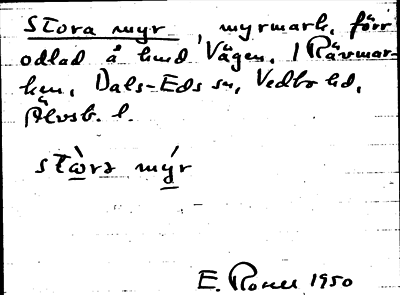 Stora myr, myrmark, förr
odlad å hmd Vågen, i Rävmar-
ken, Dals-Eds sn, Vedbo hd,
Älvsb. l.
stɷ̀rə mýr
E. Rosell 1950